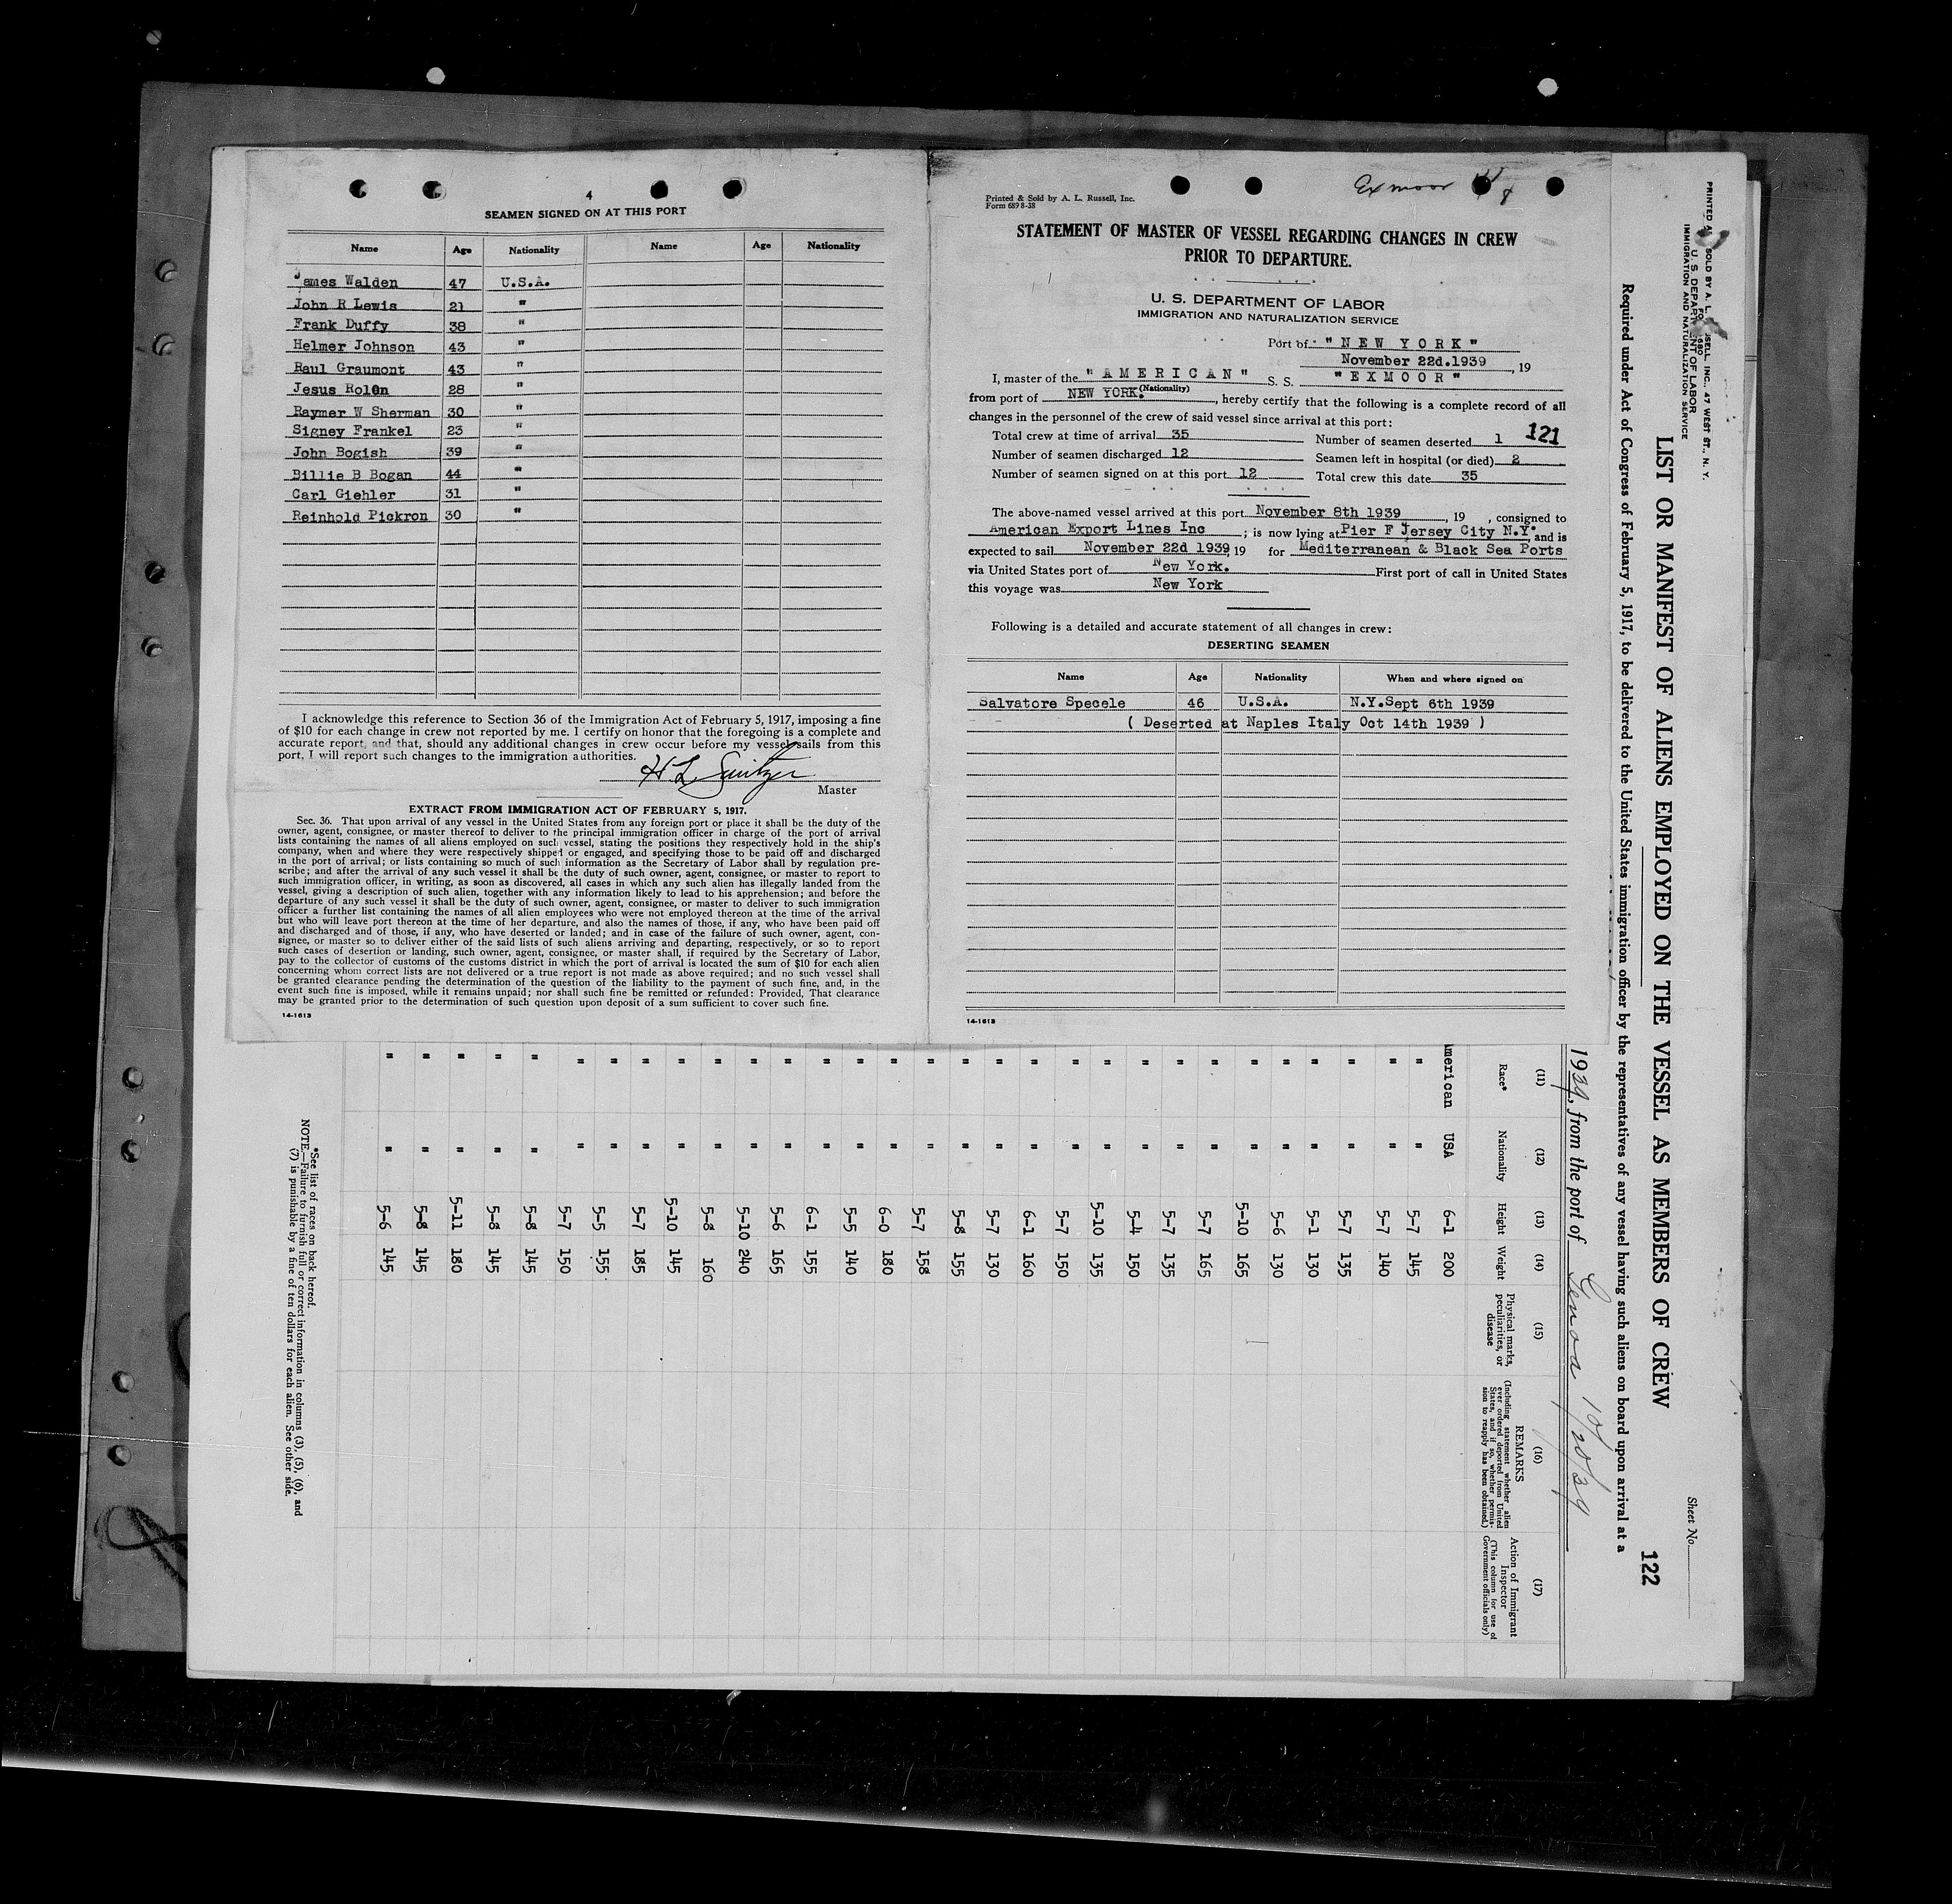 4
SEAMEN SIGNED ON AT THIS PORT
Name Age Nationality Name Age Nationality
James Walden 47 U.S.A.
John R Lewis 21 "
Frank Duffy 38 "
Helmer Johnson 43 "
Raul Graumont 43 "
Jesus Rolon 28 "
Raymer W Sherman 30 "
Signey Frankel 23 "
John Bogish 39 "
Billie B Bogan 44 "
Carl Giehler 31 "
Reinhold Pickron 30 "
I acknowledge this reference to Section 36 of the Immigration Act of February 5, 1917, imposing a fine
of $10 for each change in crew not reported by me. I certify on honor that the foregoing is a complete and
accurate report, and that, should any additional changes in crew occur before my vessel sails from this
port, I will report such changes to the immigration authorities.
Master
EXTRACT FROM IMMIGRATION ACT OF FEBRUARY 5, 1917.
Sec. 36. That upon arrival of any vessel in the United States from any foreign port or place it shall be the duty of the
owner, agent, consignee, or master thereof to deliver to the principal immigration officer in charge of the port of arrival
lists containing the names of all aliens employed on such vessel, stating the positions they respectively hold in the ship's
company, when and where they were respectively shipped or engaged, and specifying those to be paid off and discharged
in the port of arrival; or lists containing so much of such information as the Secretary of Labor shall by regulation pre-
scribe; and after the arrival of any such vessel it shall be the duty of such owner, agent, consignee, or master to report to
such immigration officer, in writing, as soon as discovered, all cases in which any such alien has illegally landed from the
vessel, giving a description of such alien, together with any information likely to lead to his apprehension; and before the
departure of any such vessel it shall be the duty of such owner, agent, consignee, or master to deliver to such immigration
officer a further list containing the names of all alien employees who were not employed thereon at the time of the arrival
but who will leave port thereon at the time of her departure, and also the names of those, if any, who have been paid off
and discharged and of those, if any, who have deserted or landed; and in case of the failure of such owner, agent, con-
signee, or master so to deliver either of the said lists of such aliens arriving and departing, respectively, or so to report
such cases of desertion or landing, such owner, agent, consignee, or master shall, if required by the Secretary of Labor,
pay to the collector of customs of the customs district in which the port of arrival is located the sum of $10 for each alien
concerning whom correct lists are not delivered or a true report is not made as above required; and no such vessel shall
be granted clearance pending the determination of the question of the liability to the payment of such fine, and, in the
event such fine is imposed, while it remains unpaid; nor shall such fine be remitted or refunded: Provided, That clearance
may be granted prior to the determination of such question upon deposit of a sum sufficient to cover such fine.
14-1613
Exmoor
Printed & Sold by A. L. Russell, Inc.
Form 689 8-38
STATEMENT OF MASTER OF VESSEL REGARDING CHANGES IN CREW
PRIOR TO DEPARTURE.
U. S. DEPARTMENT OF LABOR
IMMIGRATION AND NATURALIZATION SERVICE
Port of "NEW YORK"
November 22d.1939, 19
I, master of the "AMERICAN" S. S. "EXMOOR"
(Nationality)
from port of NEW YORK., hereby certify that the following is a complete record of all
changes in the personnel of the crew of said vessel since arrival at this port:
Total crew at time of arrival 35 Number of seamen deserted 1 121
Number of seamen discharged 12 Seamen left in hospital (or died) 2
Number of seamen signed on at this port 12 Total crew this date 35
The above-named vessel arrived at this port November 8th 1939, 19 , consigned to
American Export Lines Inc ; is now lying at Pier F Jersey City N.Y. and is
expected to sail November 22d 1939 19 for Mediterranean & Black Sea Ports
via United States port of New York. First port of call in United States
this voyage was New York
Following is a detailed and accurate statement of all changes in crew:
DESERTING SEAMEN
Name Age Nationality When and where signed on
Salvatore Specele 46 U.S.A. N.Y.Sept 6th 1939
( Deserted at Naples Italy Oct 14th 1939 )
14-1613
Sheet No.
122
LIST OR MANIFEST OF ALIENS EMPLOYED ON THE VESSEL AS MEMBERS OF CREW
Required under Act of Congress of February 5, 1917, to be delivered to the United States immigration officer by the representatives of any vessel having such aliens on board upon arrival at a
1939, from the port of Genoa 10/20/39
(11) (12) (13) (14) (15) (16) (17)
Race* Nationality Height Weight Physical marks, peculiarities, or disease REMARKS (Including statement whether alien ever ordered deported from United States, and if so, whether permission to reapply has been obtained.) Action of Immigrant Inspector (This column for use of Government officials only)
American USA 6-1 200
" " 5-7 145
" " 5-7 140
" " 5-7 135
" " 5-1 130
" " 5-6 130
" " 5-10 165
" " 5-7 165
" " 5-7 135
" " 5-4 150
" " 5-10 135
" " 5-7 150
" " 6-1 160
" " 5-7 130
" " 5-8 155
" " 5-7 158
" " 6-0 180
" " 5-5 140
" " 6-1 155
" " 5-6 165
" " 5-10 240
" " 5-8 160
" " 5-10 145
" " 5-7 185
" " 5-5 155
" " 5-7 150
" " 5-8 145
" " 5-8 145
" " 5-11 180
" " 5-8 145
" " 5-6 145
*See list of races on back hereof.
NOTE.—Failure to furnish full or correct information in columns (3), (5), (6), and
(7) is punishable by a fine of ten dollars for each alien. See other side.